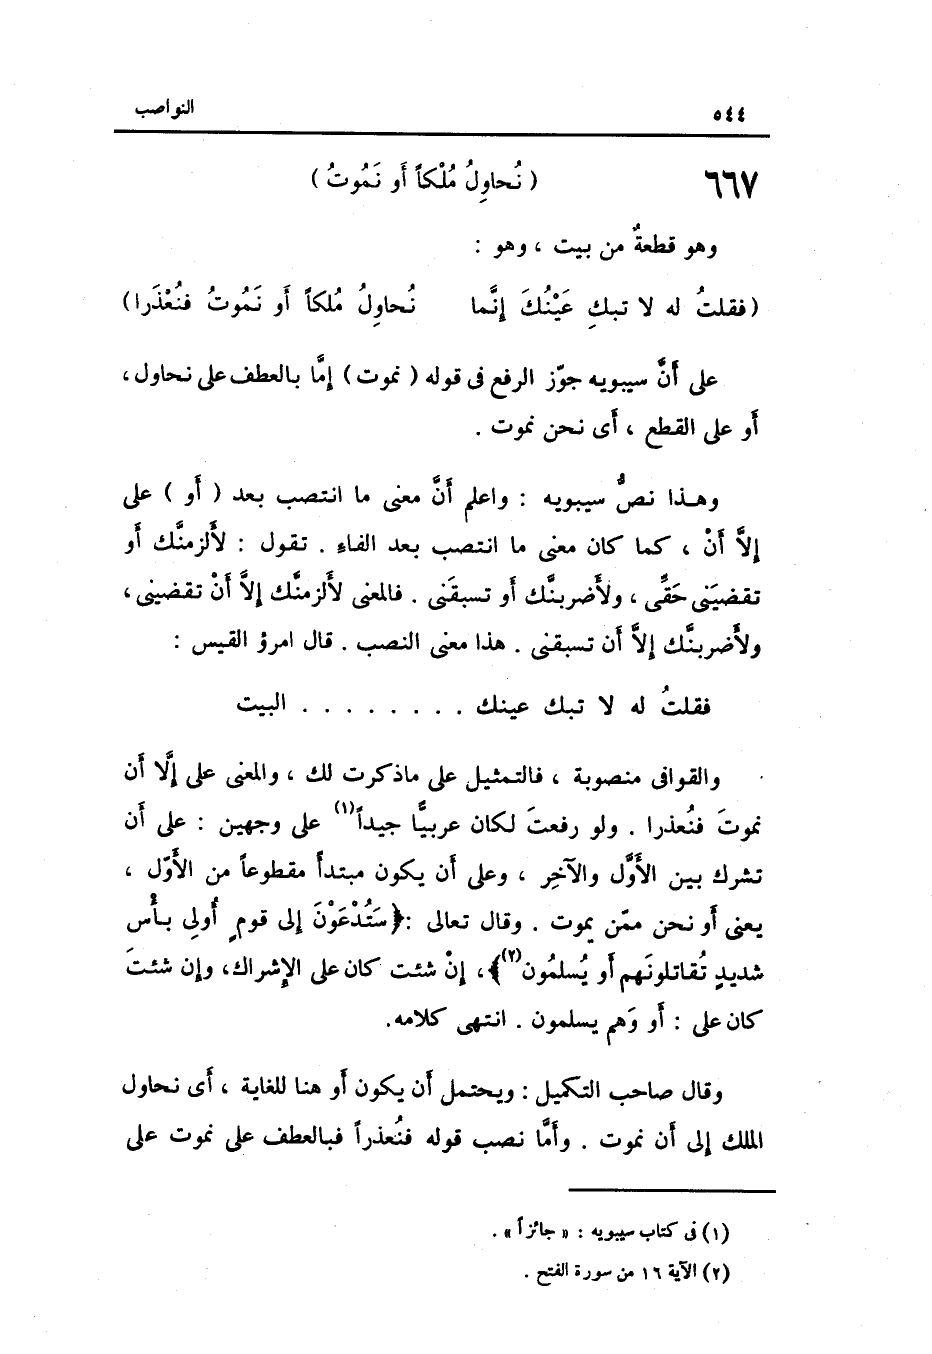 ٥٤٤ النواصب
٦٦٧ ( نُحاوِلُ مُلْكاً أَو نَمُوتُ )
وهو قطعةٌ من بيت ، وهو :
(فقلتُ له لا تبكِ عَيْنُكَ إنَّما نُحاوِلُ مُلكاً أو نَمُوتُ فنُعْذَرا)
على أَنَّ سيبويه جوّز الرفع فى قوله ( نموت ) إمَّا بالعطف على نحاول ،
أو على القطع ، أى نحن نموت .
وهذا نصُّ سيبويه : واعلم أَنَّ معنى ما انتصب بعد ( أَو ) على
إلاَّ أَنْ ، كما كان معنى ما انتصب بعد الفاء . تقول : لأَلزمنَّك أو
تقضيَنى حَقِّى ، ولأَضربنَّك أو تسبقَنى . فالمعنى لأَلزمنَّك إلاَّ أَنْ تقضينى ،
ولأَضربنَّك إلاَّ أَن تسبقنى . هذا معنى النصب . قال امرؤ القيس :
فقلتُ له لا تبك عينك . . . . . . . . البيت
والقوافى منصوبة ، فالتمثيل على ماذكرت لك ، والمعنى على إلَّا أَن
نموتَ فنُعذرا . ولو رفعتَ لكان عربيًّا جيداً(١) على وجهين : على أَن
تشرك بين الأَوَّل والآخِر ، وعلى أن يكون مبتدأ مقطوعاً من الأَوّل ،
يعنى أَو نحن ممّن يموت . وقال تعالى :﴿سَتُدْعَوْنَ إلى قومٍ أُولِى بأْس
شديدٍ تُقاتلونَهم أَو يُسلمُون(٢)﴾، إنْ شئت كان على الإشراك، وإن شئتَ
كان على : أَو وَهم يسلمون . انتهى كلامه.
وقال صاحب التكميل : ويحتمل أَن يكون أَو هنا للغاية ، أَى نحاول
الملك إلى أَن نموت . وأَمَّا نصب قوله فنُعذراً فبالعطف على نموت على
(١) فى كتاب سيبويه : « جائزاً » .
(٢) الآية ١٦ من سورة الفتح .